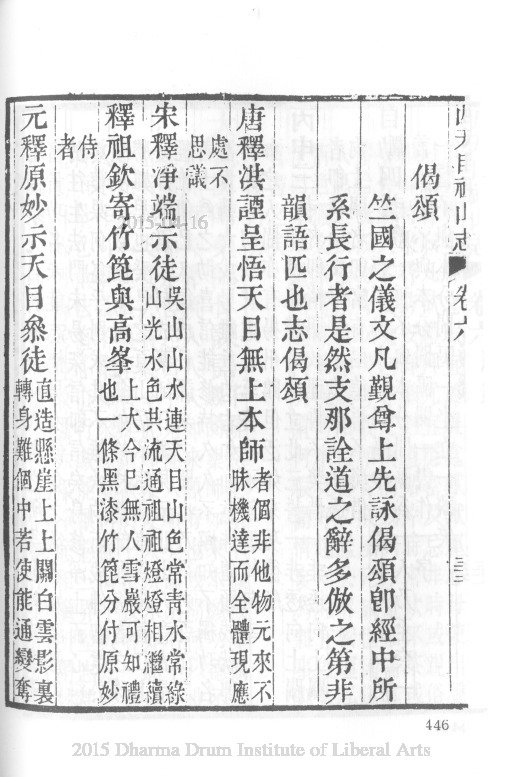 西天目祖山志 卷六
偈頌
竺國之儀文凡覲尊上先詠偈頌卽經中所
系長行者是然支那詮道之辭多倣之第非
韻語匹也志偈頌
唐釋洪諲呈悟天目無上本師
者個非他物元來不
昧機達而全體現應
處不
思議
宋釋淨端示徒
吳山山水連天目山色常青水常綠
山光水色共流通祖祖燈燈相繼續
釋祖欽寄竹篦與高峯
上大今已無人雪巖可知禮
也一條黑漆竹篦分付原妙
侍
者
元釋原妙示天目叅徒
直造懸崖上上關白雲影裏
轉身難個中若使能通變奪
446
2015 Dharma Drum Institute of Liberal Arts